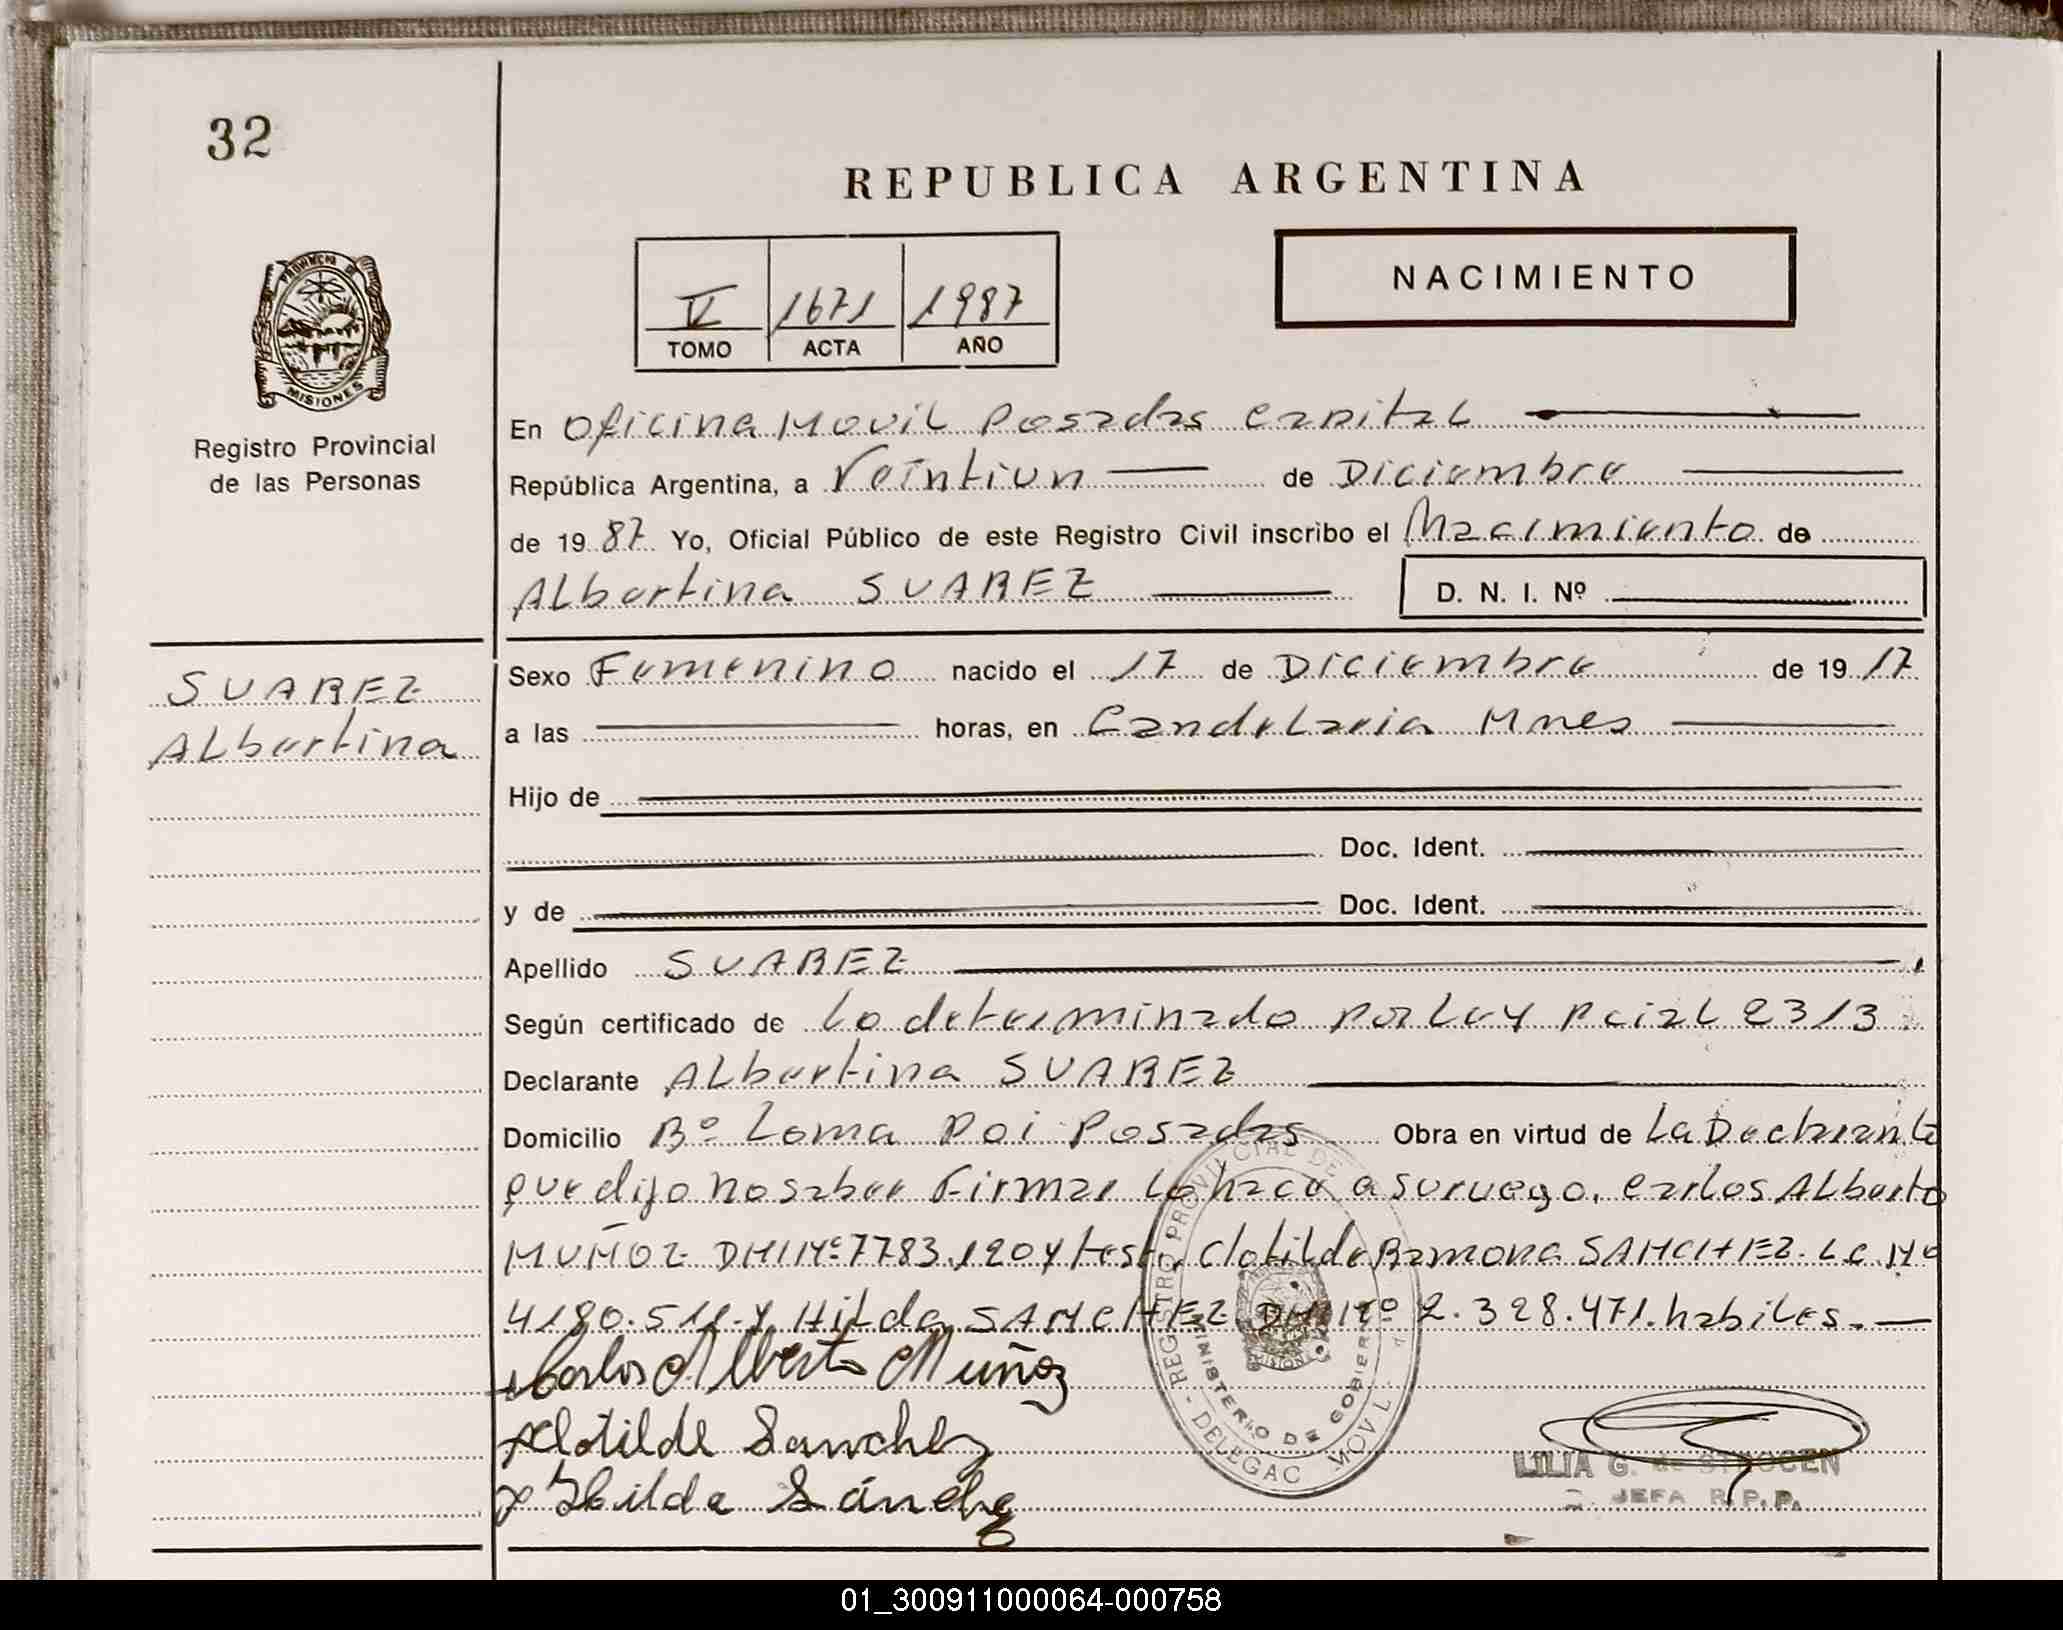 32
REPUBLICA ARGENTINA
PROVINCIA DE
MISIONES
Registro Provincial
de las Personas
V 1671 1987
TOMO ACTA AÑO
NACIMIENTO
En Oficina Movil Posadas Capital
República Argentina, a Veintiun de Diciembre
de 19 87 Yo, Oficial Público de este Registro Civil inscribo el Nacimiento de
Albertina SUAREZ D. N. I. Nº
SUAREZ
Albertina
Sexo Femenino nacido el 17 de Diciembre de 19 17
a las horas, en Candelaria Mnes
Hijo de
Doc. Ident.
y de Doc. Ident.
Apellido SUAREZ
Según certificado de lo determinado por Ley Pcial 2313
Declarante Albertina SUAREZ
Domicilio Bº Loma Poi Posadas Obra en virtud de La Declarante
que dijo no saber Firmar lo hace a su ruego, Carlos Alberto
MUÑOZ DNI Nº 7783.120 y test. Clotilde Ramona SANCHEZ. LC. Nº
4180.511. y Hilda SANCHEZ DNI Nº 2.328.471. habiles.
Carlos Alberto Muñoz
Clotilde Sanchez
Hilda Sánchez
REGISTRO PROVINCIAL DE
MINISTERIO DE GOBIER
MISIONES
DELEGAC MOVIL
LILIA G. de
JEFA R.P.P.
01_300911000064-000758